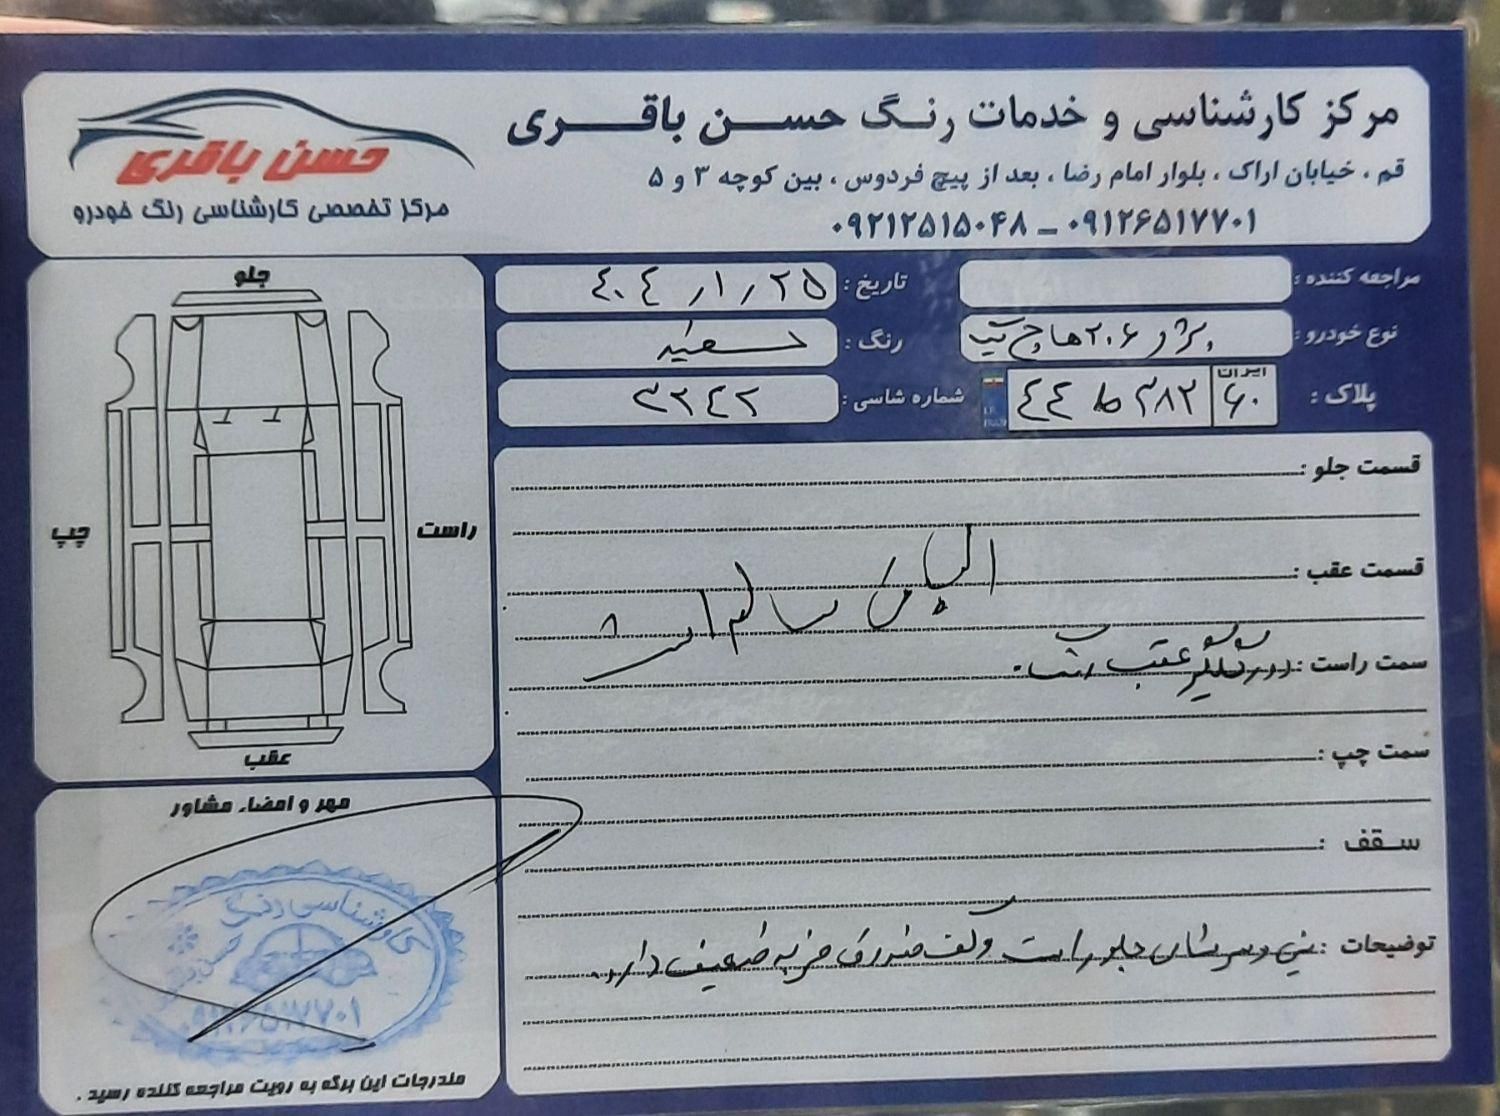 مرکز کارشناسی و خدمات رنگ حسن باقری
قم ، خیابان اراک ، بلوار امام رضا ، بعد از پیچ فردوس ، بین کوچه ۳ و ۵
۰۹۱۲۶۵۱۷۷۰۱ – ۰۹۲۱۲۵۱۵۰۴۸
حسن باقری
مرکز تخصصی کارشناسی رنگ خودرو
مراجعه کننده :
تاریخ : ۴۰۴/۱/۲۵
نوع خودرو : پژو ۲۰۶ هاچ بک
رنگ : سفید
پلاک : ایران ۶۰ ۳۸۲ ط ۴۴
شماره شاسی : ۳۲۴۲
جلو
راست
چپ
عقب
قسمت جلو :
قسمت عقب :
سالم است
سمت راست : عقب
سمت چپ :
سقف :
توضیحات : سینی و سرشاسی جلو راست و کف صندوق ضربه ضعیف دارد.
مهر و امضاء مشاور
کارشناسی رنگ
۰۹۱۲۶۵۱۷۷۰۱
مندرجات این برگه به رویت مراجعه کننده رسید .